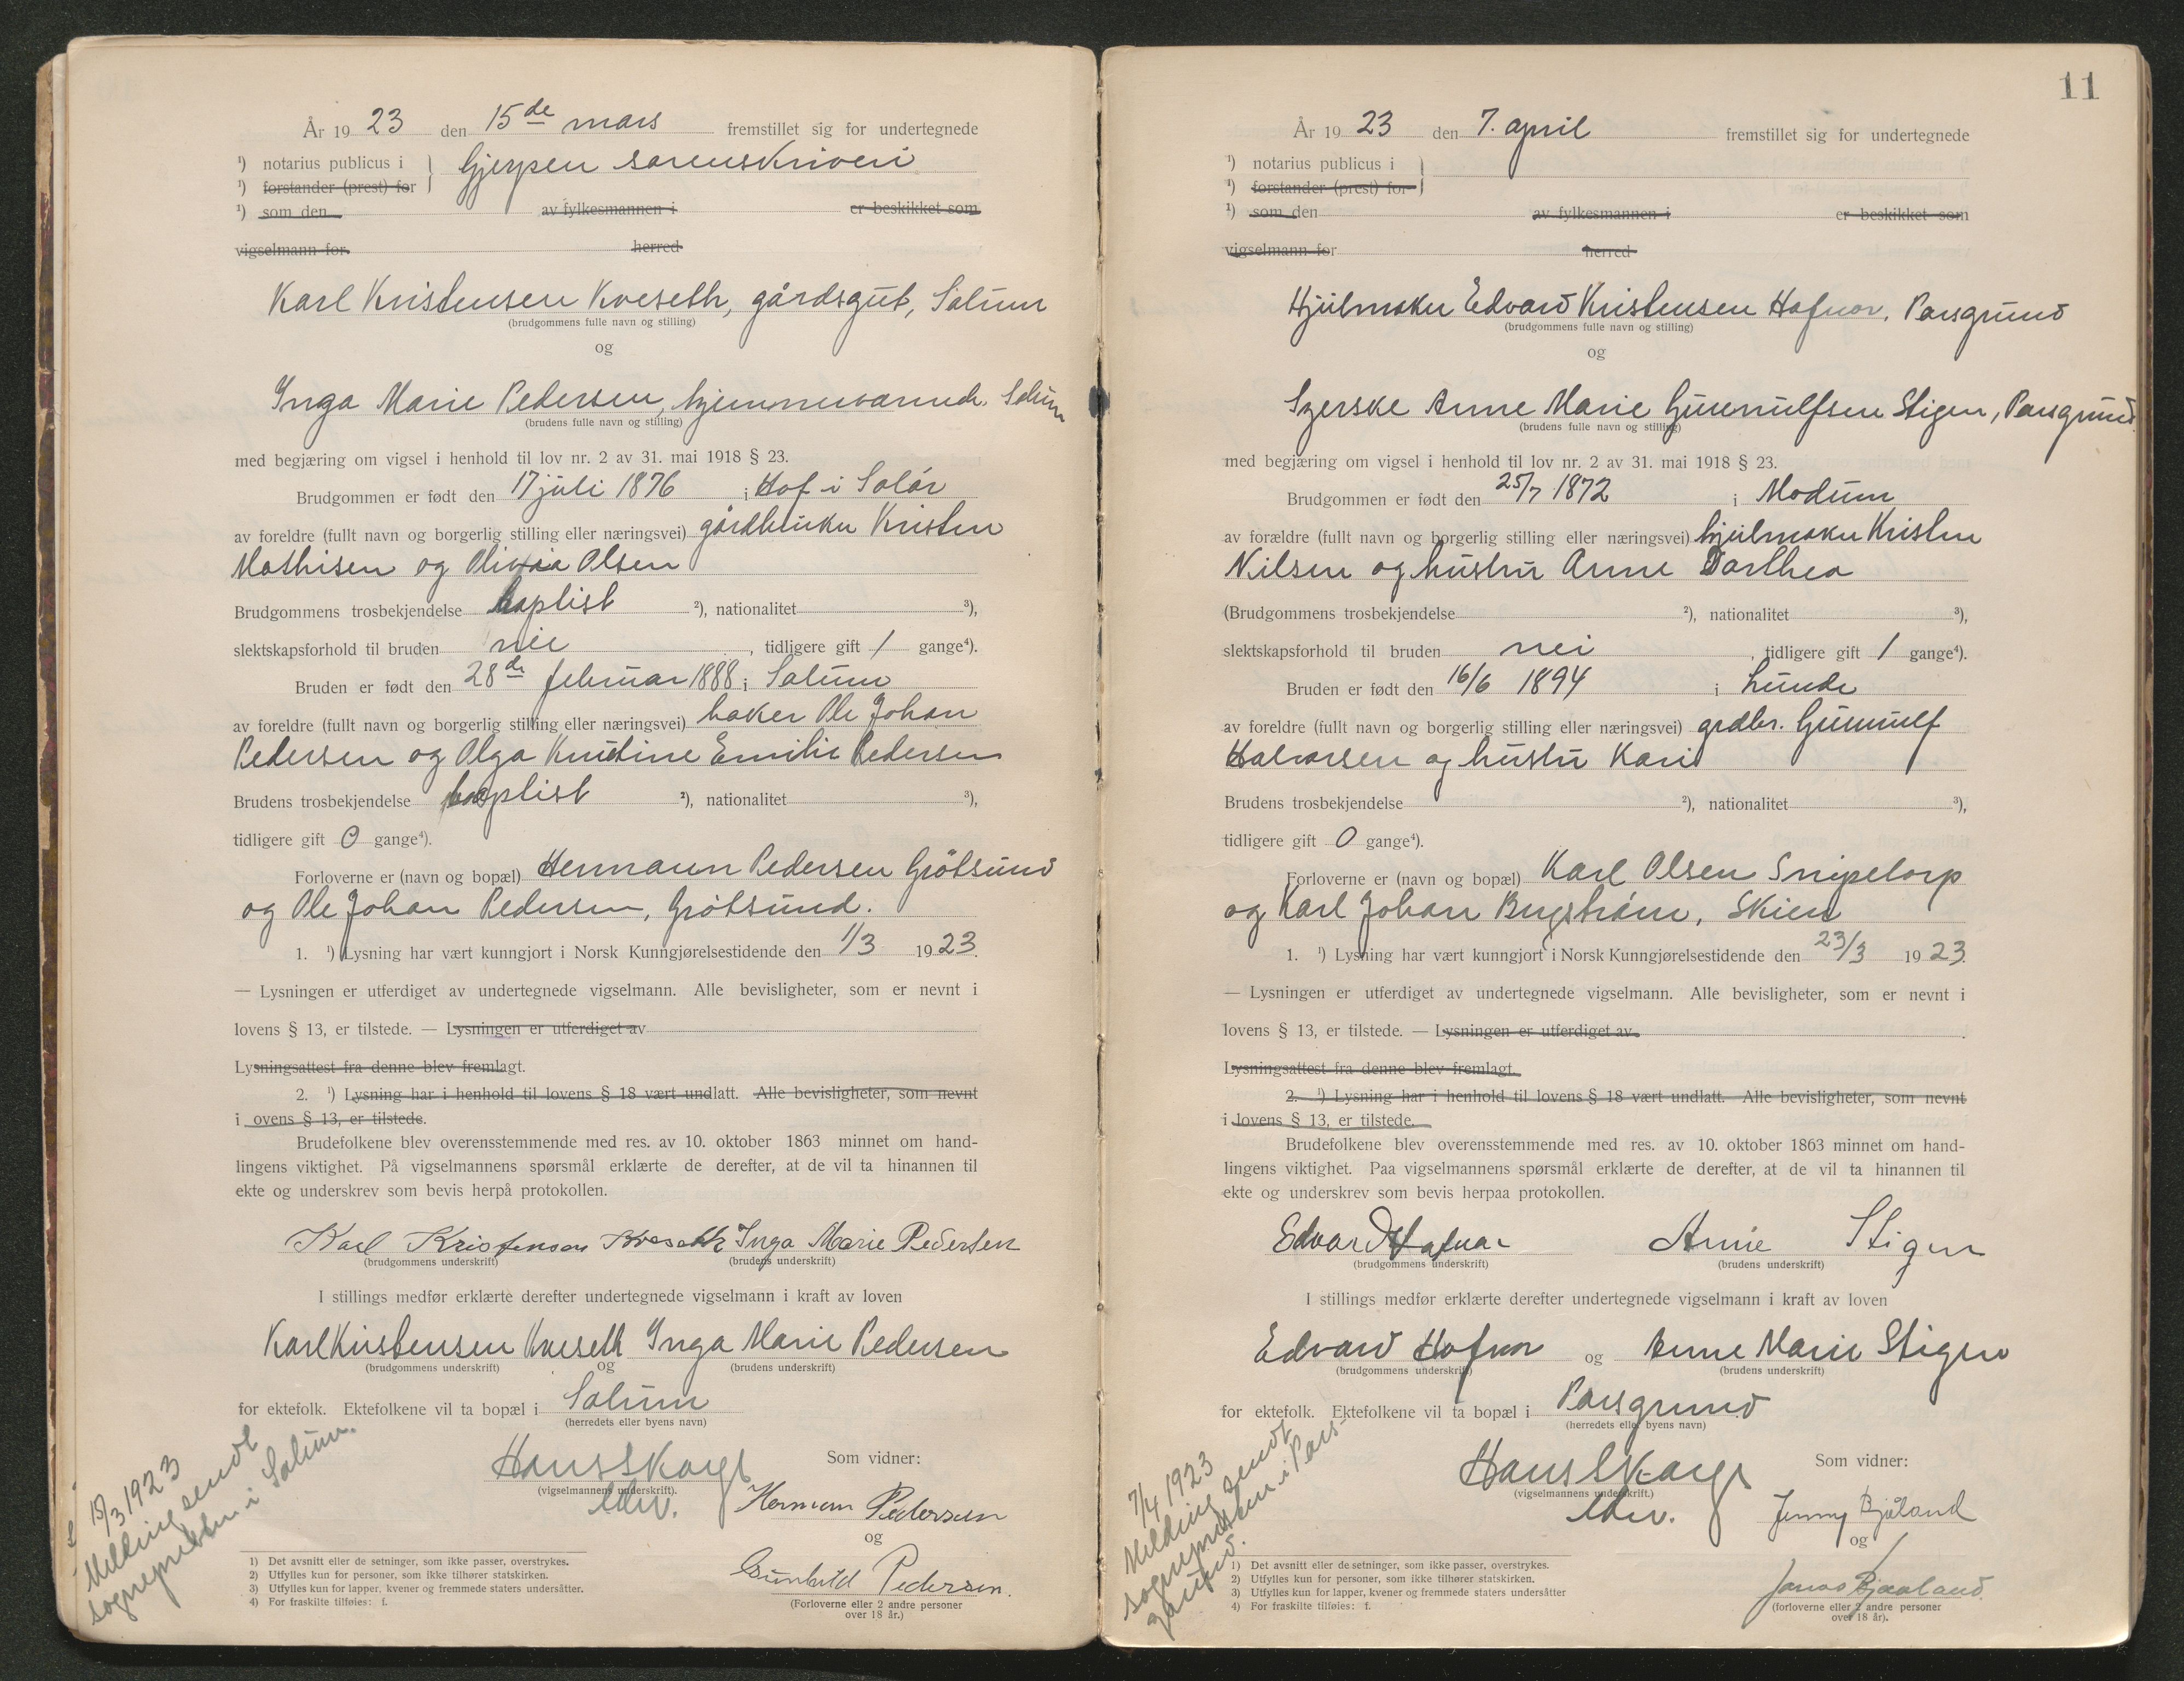 År 1923 den 15de mars fremstillet sig for undertegnede
¹) notarius publicus i } Gjerpen sorenskriveri
¹) forstander (prest) for
¹) som den av fylkesmannen i er beskikket som
vigselmann for herred
Karl Kristensen Kveseth, gårdsgut, Solum
(brudgommens fulle navn og stilling)
og
Inga Marie Pedersen, hjemmeværende, Solum
(brudens fulle navn og stilling)
med begjæring om vigsel i henhold til lov nr. 2 av 31. mai 1918 § 23.
Brudgommen er født den 17 juli 1876 i Hof i Solør
av foreldre (fullt navn og borgerlig stilling eller næringsvei) gårdbruker Kristen
Mathisen og Olivia Olsen
Brudgommens trosbekjendelse baptist ²), nationalitet ³),
slektskapsforhold til bruden nei, tidligere gift 1 gange⁴).
Bruden er født den 28de februar 1888 i Solum
av foreldre (fullt navn og borgerlig stilling eller næringsvei) baker Ole Johan
Pedersen og Olga Emilie Pedersen
Brudens trosbekjendelse baptist ²), nationalitet ³),
tidligere gift 0 gange⁴).
Forloverne er (navn og bopæl) Hermann Pedersen Grötsund
og Ole Johan Pedersen, Grötsund.
1. ¹) Lysning har vært kunngjort i Norsk Kunngjørelsestidende den 1/3 1923.
— Lysningen er utferdiget av undertegnede vigselmann. Alle bevisligheter, som er nevnt i
lovens § 13, er tilstede. — Lysningen er utferdiget av
Lysningsattest fra denne blev fremlagt.
2. ¹) Lysning har i henhold til lovens § 18 vært undlatt. Alle bevisligheter, som nevnt
i ovens § 13, er tilstede.
Brudefolkene blev overensstemmende med res. av 10. oktober 1863 minnet om hand-
lingens viktighet. På vigselmannens spørsmål erklærte de derefter, at de vil ta hinannen til
ekte og underskrev som bevis herpå protokollen.
Karl Kristensen Kveseth Inga Marie Pedersen
(brudgommens underskrift) (brudens underskrift)
I stillings medfør erklærte derefter undertegnede vigselmann i kraft av loven
Karl Kristensen Kveseth Inga Marie Pedersen
(brudgommens underskrift) og (brudens underskrift)
for ektefolk. Ektefolkene vil ta bopæl i Solum
(herredets eller byens navn)
Hans Skarge Som vidner:
(vigselmannens underskrift).
edv.
Herman Pedersen
og
Gunhild Pedersen.
(Forloverne eller 2 andre personer
over 18 år.)
15/3 1923
Melding sendt
sognepresten i Solum.
1) Det avsnitt eller de setninger, som ikke passer, overstrykes.
2) Utfylles kun for personer, som ikke tilhører statskirken.
3) Utfylles kun for lapper, kvener og fremmede staters undersåtter.
4) For fraskilte tilføies: f.
11
År 1923 den 7. april fremstillet sig for undertegnede
¹) notarius publicus i }
¹) forstander (prest) for
¹) som den av fylkesmannen i er beskikket som
vigselmann for herred
Hjulmaker Edvard Kristensen Hofnor, Porsgrund
(brudgommens fulle navn og stilling)
og
Syerske Anne Marie Gunnulfsen Stigen, Porsgrund.
(brudens fulle navn og stilling)
med begjæring om vigsel i henhold til lov nr. 2 av 31. mai 1918 § 23.
Brudgommen er født den 25/7 1872 i Modum
av forældre (fullt navn og borgerlig stilling eller næringsvei) hjulmaker Kristen
Nilsen og hustru Anne Dorthea
(Brudgommens trosbekjendelse ²), nationalitet ³),
slektskapsforhold til bruden nei, tidligere gift 1 gange⁴).
Bruden er født den 16/6 1894 i Lunde
av foreldre (fullt navn og borgerlig stilling eller næringsvei) grdbr. Gunnulf
Halvorsen og hustru Kari
Brudens trosbekjendelse ²), nationalitet ³),
tidligere gift 0 gange⁴).
Forloverne er (navn og bopæl) Karl Olsen Snipetorp
og Karl Johan Bergström, Skien
1. ¹) Lysning har vært kunngjort i Norsk Kunngjørelsestidende den 23/3 1923.
— Lysningen er utferdiget av undertegnede vigselmann. Alle bevisligheter, som er nevnt i
lovens § 13, er tilstede. — Lysningen er utferdiget av
Lysningsattest fra denne blev fremlagt.
2. ¹) Lysning har i henhold til lovens § 18 vært undlatt. Alle bevisligheter, som nevnt
i lovens § 13, er tilstede.
Brudefolkene blev overensstemmende med res. av 10. oktober 1863 minnet om hand-
lingens viktighet. Paa vigselmannens spørsmål erklærte de derefter, at de vil ta hinannen til
ekte og underskrev som bevis herpaa protokollen.
Edvard Hofnor Annie Stigen
(brudgommens underskrift) (brudens underskrift)
I stillings medfør erklærte derefter undertegnede vigselmann i kraft av loven
Edvard Hofnor og Anne Marie Stigen
(brudgommens underskrift) (brudens underskrift)
for ektefolk. Ektefolkene vil ta bopæl i Porsgrund
(herredets eller byens navn)
Hans Skarge Som vidner:
(vigselmannens underskrift.)
edv.
Jenny Bjåland
og
Bjaaland
(forloverne eller 2 andre personer
over 18 år).
7/4 1923
Melding sendt
sognepresten i Pors-
grund.
1) Det avsnitt eller de setninger, som ikke passer, overstrykes.
2) Utfylles kun for personer, som ikke tilhører statskirken.
3) Utfylles kun for lapper, kvener og fremmede staters undersåtter
4) For fraskilte tilføies: f.